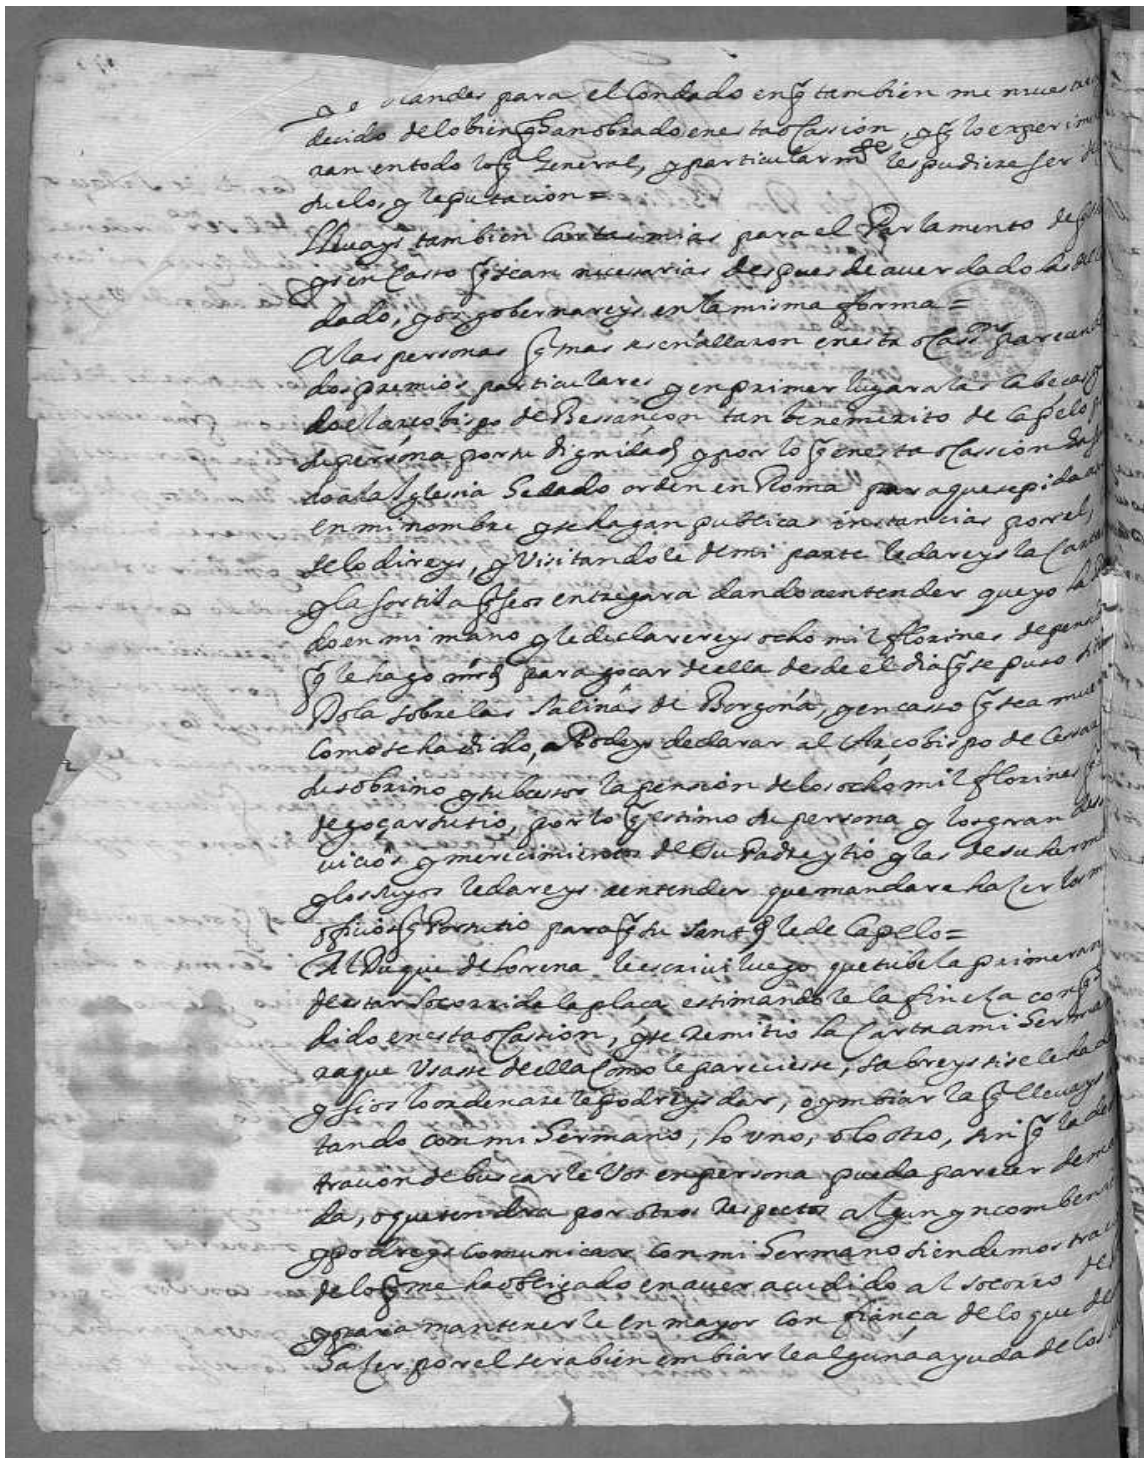 para el Condado en q tambien me muestro
decido de lo bien q han obrado en esta ocassion, y q lo experimen
ran en todo lo q General, y particularm.te les pudiere ser de
suelo, y reputacion=
Lleuays tambien carta mias para el Parlamento de
y si en casso q sean necesarias despues de auer dado las del
dado, y os gobernareys en la misma forma=
A las personas q mas se señallaron en esta ocass.on parecen
dos premios particulares y en primer lugar a las cabeças
do el arcobispo de Bessançon tan benemerito de Capelo
su persona por su dignidad y por lo q en esta ocassion
do a la Iglessia He dado orden en Roma para que se pida
en mi nombre y se hagan publicas instancias por el,
se lo direys, y Visitandole de mi parte le dareys la Carta
y la sortija q se os entregara dando a entender que yo la
do en mi mano y le declarereys ocho mil florines de pensi
q le hago mrd para goçar de ella desde el dia q se puso sitio
Dola sobre las Salinas de Borgoña, y en casso q sea muer
como se ha dicho, Podeys declarar al Arçobispo de Cessarea
su sobrino y subcessor la pension de los ocho mil florines
de goçar su tio, por lo q estimo su persona y los gran
uicios y merecimientos de su Padre y tio y las de su herma
y los suyos le dareys a entender que mandare haçer los mis
officios q Por su tio para q su Sant.d le de Capelo=
Al Duque de Lorena le escriui luego que tube la primera n
de estar socorrida la plaça estimandole la fineça con q
dido en esta ocassion, y se remitio la Carta a mi Herma
ra que Vsasse de ella Como le pareciesse, sabreys si se le ha
y si os lo ordenare le podreys dar, o ymbiar la q lleuays
tando con mi Hermano, lo vno, o lo otro, sin q la de
tracion de buscarle Vos en persona pueda parecer dema
da, o que tendra por otros respectos algun yncombeni
y podreys comunicar con mi Hermano si en demostraci
de lo q me ha obligado en auer acudido al socorro de
y para mantenerle en mayor confiança de lo que de
Haçer por el sera bien embiarle alguna ayuda de los